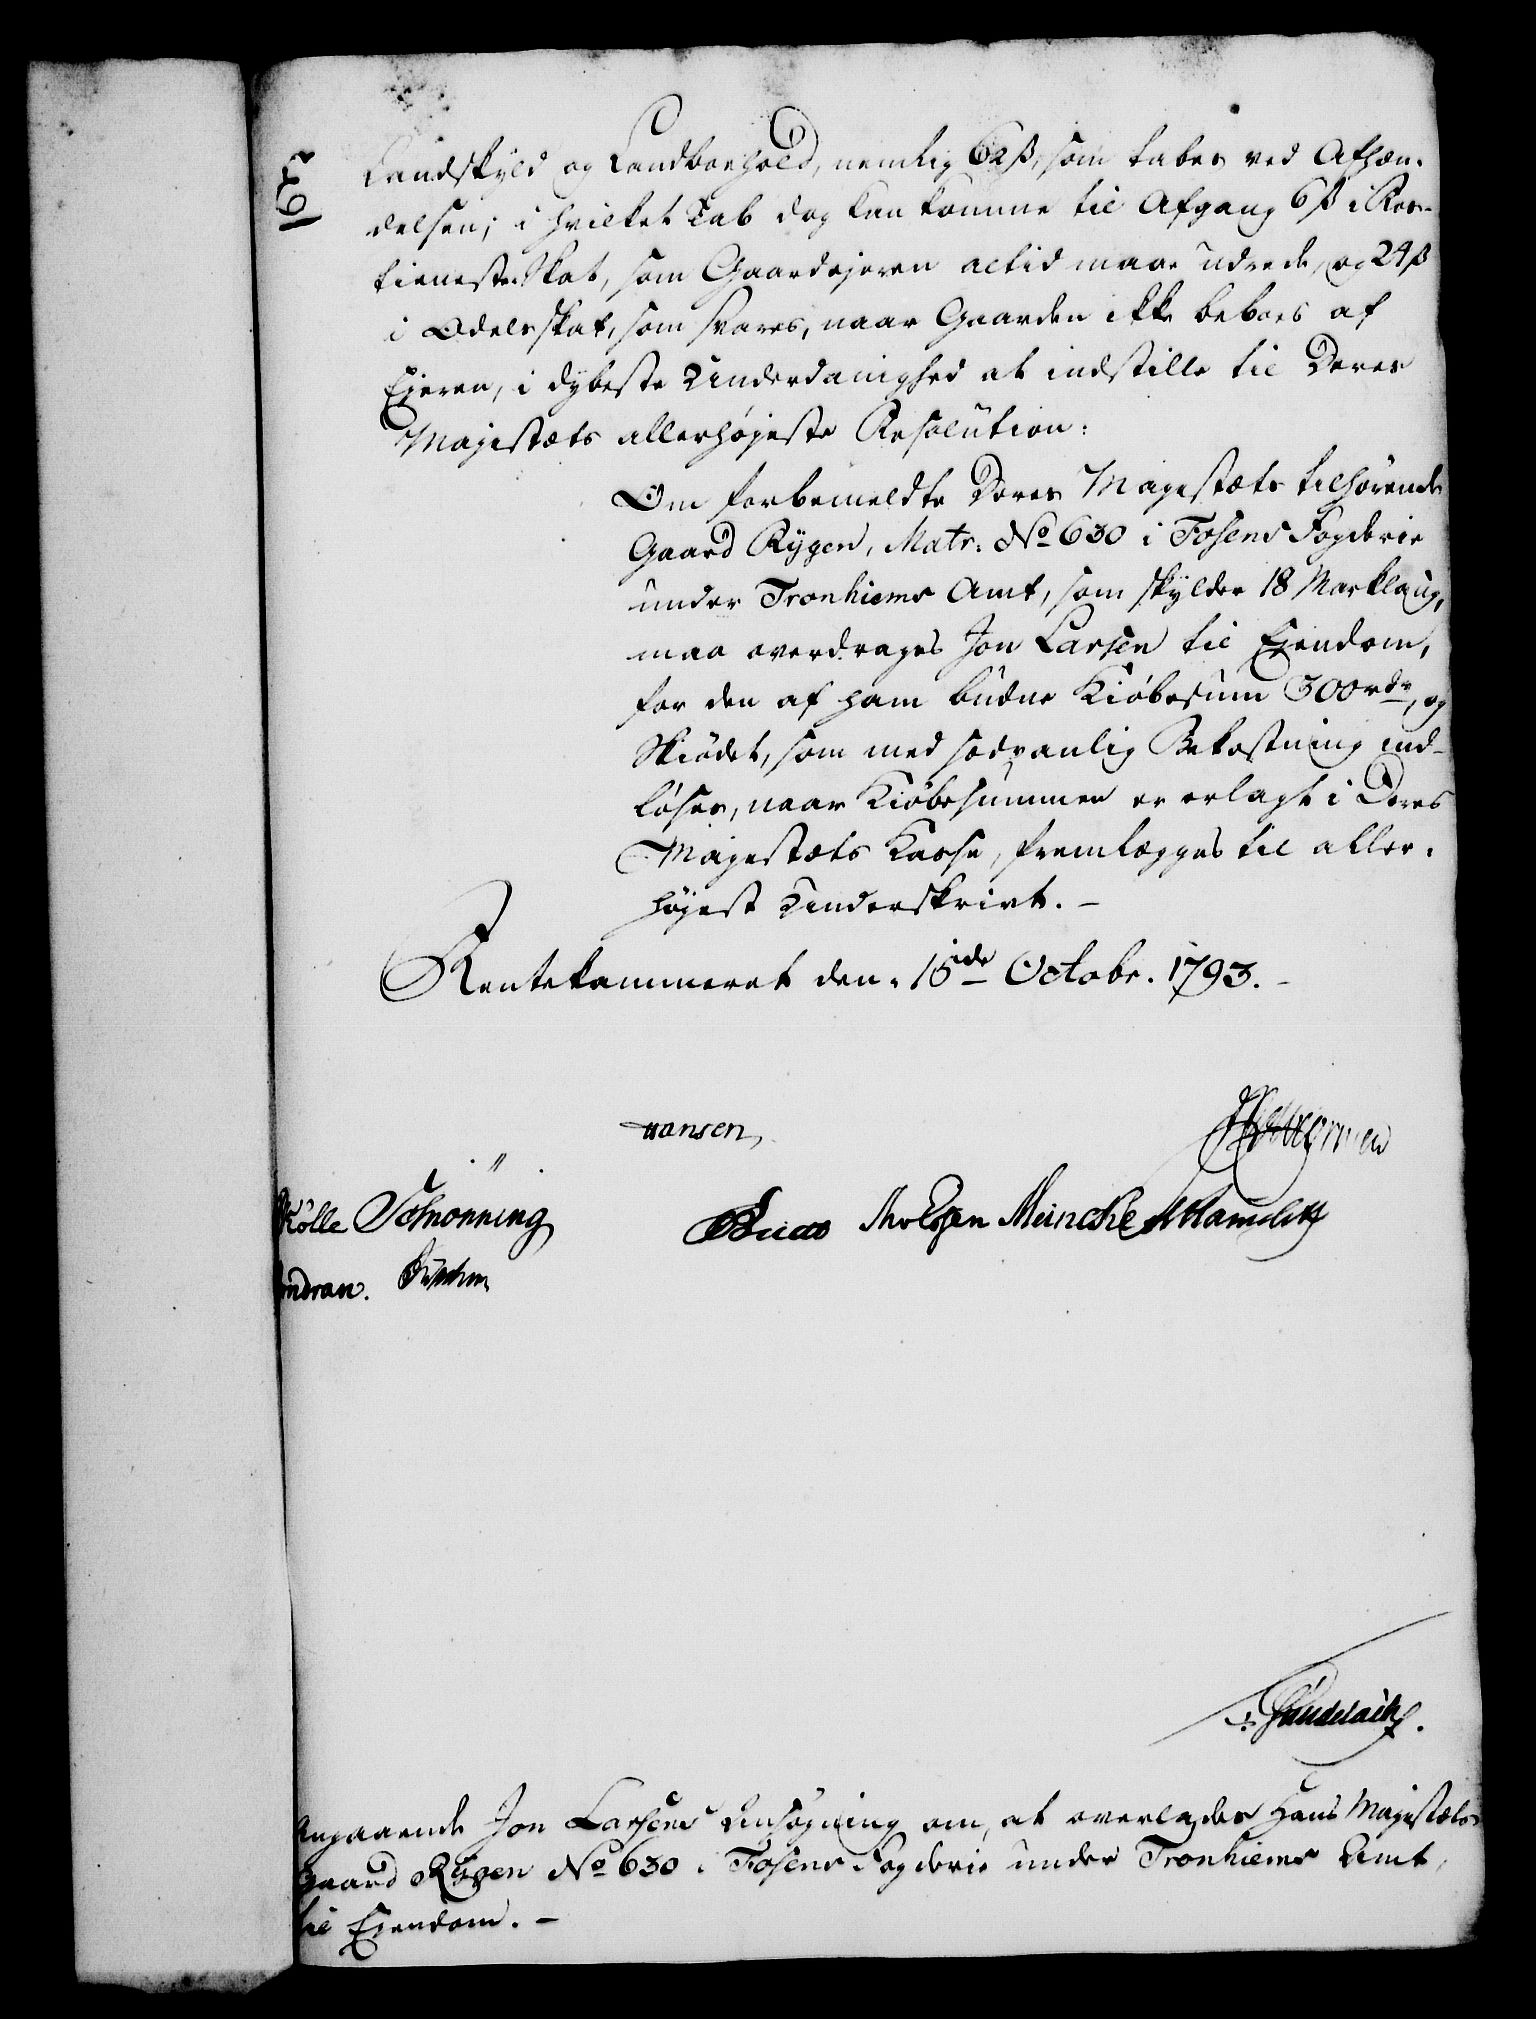 Landskyld og Landboehold, nemlig 62 ß, som tabes ved Afhæn-
delsen; i hvilket Tab dog kan komme til Afgang 6 ß i Ros-
tieneste Skat, som Gaardejeren altid maae udrede, og 24 ß
i Odelsskat, som svares, naar Gaarden ikke beboes af
Ejeren, i dybeste Underdanighed at indstille til Deres
Majestæts allerhøjeste Resolution:
Om forbemeldte Deres Majestæts tilhørende
Gaard Rygen, Matr: No 630 i Fosens Fogderie
under Tronhiems Amt, som skylder 18 Marklaug,
maa overdrages Jon Larsen til Ejendom,
for den af ham budne Kiøbesum 300 rdr, og
Skiödet, som med sædvanlig Bekostning ind-
løses, naar Kiøbesummen er erlagt i Deres
Majestæts Kasse, fremlægges til aller-
højest Underskrivt. –
Rentekammeret den 15de Octobr. 1793. –
Hansen,
Kölle Schönning Meincke
Angaaende Jon Larsens Ansøgning om, at overlades Hans Majestæts
Gaard Rygen No 630 i Fosens Fogderie under Tronhiems Amt,
til Ejendom. –